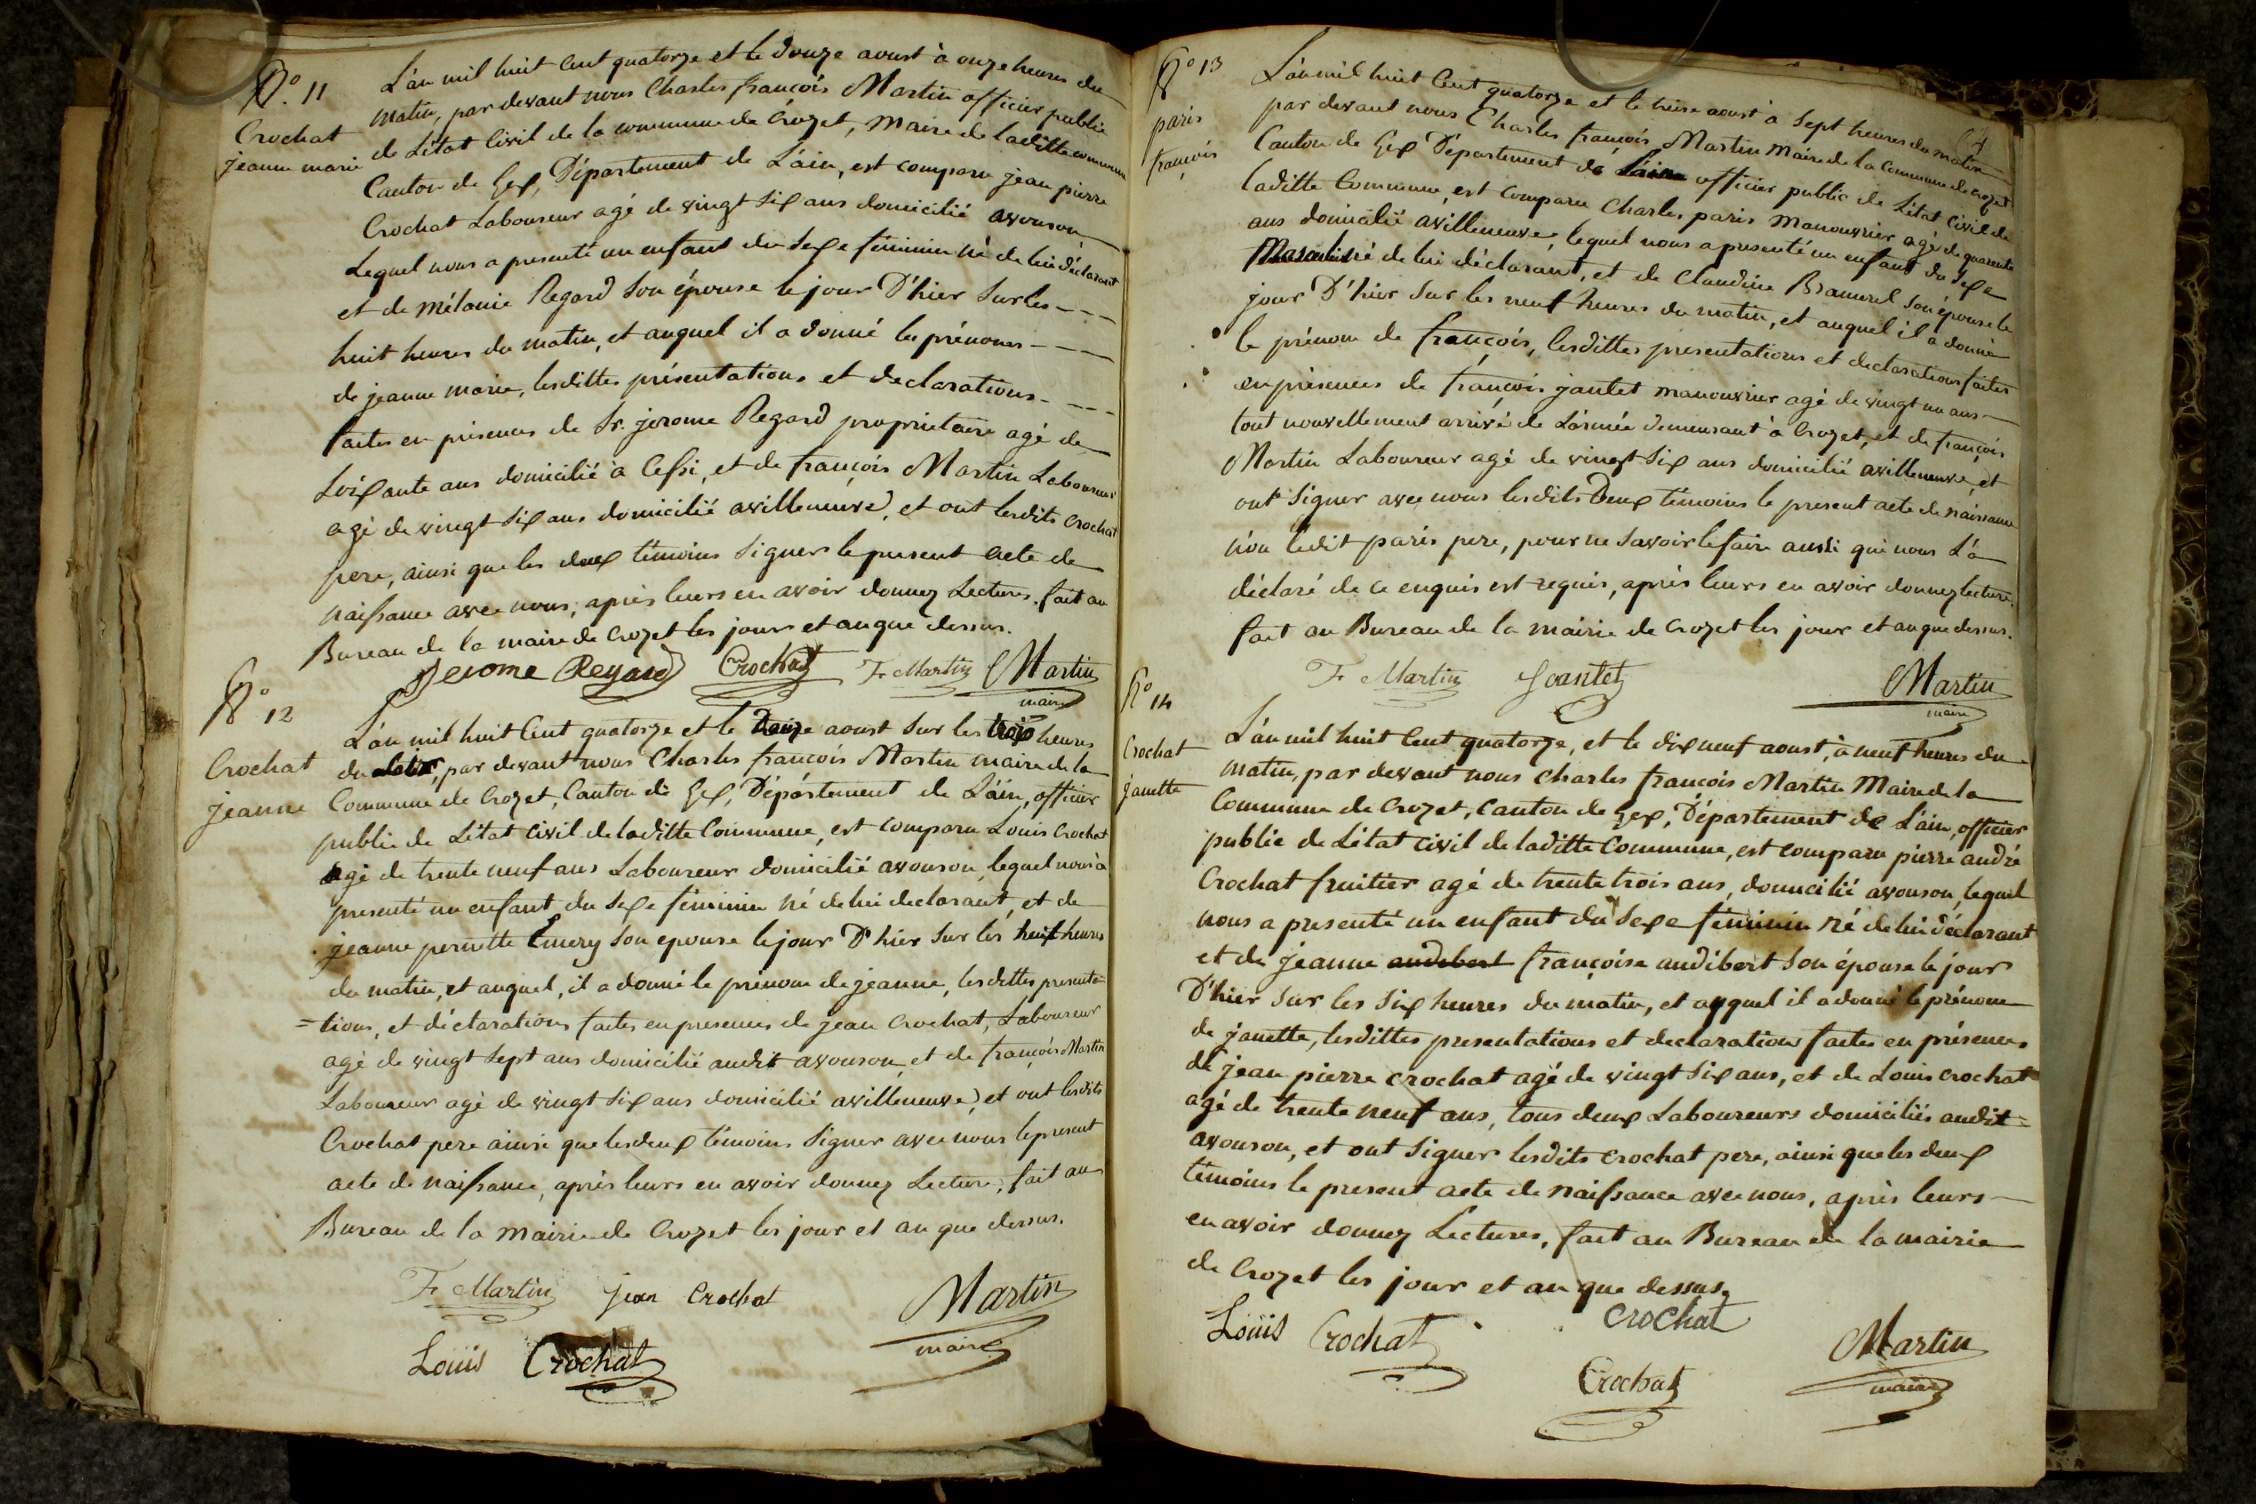 N.o 11
Crochat
jeanne marie
L'an mil huit Cent quatorze et le Douze aoust à onze heures du
matin, par devant nous Charles françois Martin officier public
de L'état Civil de la commune de Crozet, Maire de laditte commune
Canton de Gex, Département de L'ain, est comparu jean pierre
Crochat Laboureur agé de vingt six ans domicilié avouson
Lequel nous a presenté un enfant du Sexe féminin né de lui déclarant
et de mélanie Regard son épouse le jour D'hier Sur les - - -
huit heures du matin, et auquel il a donné les prénoms - - - -
de jeanne marie, lesdittes présentations et declarations - - - -
faites en présences de Sr. jerome Regard proprietaire agé de
Soixante ans domicilié à Cessi, et de françois Martin Laboureur
agé de vingt six ans domicilié avilleneuve, et ont lesdits Crochat
pere, ainsi que les deux témoins Signer le present acte de
naissance avec nous, après leurs en avoir donnez Lectures. fait au
Bureau de la maire de Crozet les jours et anque dessus.
Jerome Regard Crochat F. Martin Martin
maire
N.o 12
Crochat
jeanne
L'an mil huit Cent quatorze et le Douze aoust Sur les trois heures
du par devant nous Charles francois Martin maire de la
Commune de Crozet, Canton de Gex, Département de L'ain, officier
public de L'état Civil de laditte Commune, est comparu Louis Crochat
agé de trente neuf ans Laboureur domicilié avouson, lequel nous a
presenté un enfant du Sexe féminin né de lui declarant, et de
jeanne pernette Emery son epouse le jour D'hier Sur les heures
du matin, et auquel, il a donné le prénom de jeanne, lesdittes presenta-
=tions, et déclarations faites en presences de jean Crochat, Laboureur
agé de vingt Sept ans domicilié audit avouson, et de françois Martin
Laboureur agé de vingt Six ans domicilié avilleneuve, et ont lesdits
Crochat pere ainsi que lesdeux témoins Signer avec nous lepresent
acte de naissance, après leurs en avoir donnez Lecture, fait au
Bureau de la Mairie de Crozet les jour et an que dessus.
F. Martin jean Crochat Martin
maire
Louis Crochat
N.o 13
paris
françois
L'an mil huit Cent quatorze et le treise aoust à Sept heures du matin
par devant nous Charles françois Martin Maire de la Commune de Crozet
Canton de Gex Département de L'ain officier public de L'état Civil de
laditte Commune, est comparu Charles paris Manouvrier agé de quarente
ans domicilié avilleneuve, lequel nous a presenté un enfant du Sexe
Masculin né de lui déclarant, et de Claudine Bramerel son épouse le
jour D'hier Sur les neuf heures du matin, et auquel il a donné
le prénom de françois, lesdittes presentations et declarations faites
en présences de françois jantet manouvrier agé de vingt un ans
tout nouvellement arrivé de L'armée demeurant à Crozet, et de françois
Martin Laboureur agé de vingt Six ans domicilié avilleneuve, et
ont Signer avec nous lesdits Deux témoins le present acte de naissance
n'on ledit paris pere, pour ne Savoir lefaire ausdi qui nous L'a
déclaré de ce enquis est requis, après leurs en avoir donnez lecture.
fait au Bureau de la Mairie de Crozet les jour et anque dessus.
F. Martin Jeantet Martin
maire
N.o 14
Crochat
janette
L'an mil huit Cent quatorze, et le dix neuf aoust, à neuf heures du
Matin, par devant nous Charles françois Martin Maire de la
Commune de Crozet, Canton de Gex, Département de L'ain, officier
public de L'état Civil de laditte Commune, est comparu pierre andré
Crochat fruitier agé de trente trois ans, domicilié avouson, lequel
nous a presenté un enfant du Sexe féminin né de lui déclarant
et de jeanne audebert françoise audibert son épouse le jour
D'hier Sur les Six heures du matin, et auquel il a donné le prénom
de janette, lesdittes presentations et declarations faites en présences
de jean pierre Crochat agé de vingt Six ans, et de Louis Crochat
agé de trente neuf ans, tous deux Laboureurs domiciliés audit=
avouson, et ont Signer lesdits Crochat pere, ainsi que les deux
témoins le present acte de naissance avec nous, après leurs
en avoir donnez Lectures, fait au Bureau de la mairie
de Crozet les jour et an que dessus.
Louis Crochat Crochat Martin
Crochat maire